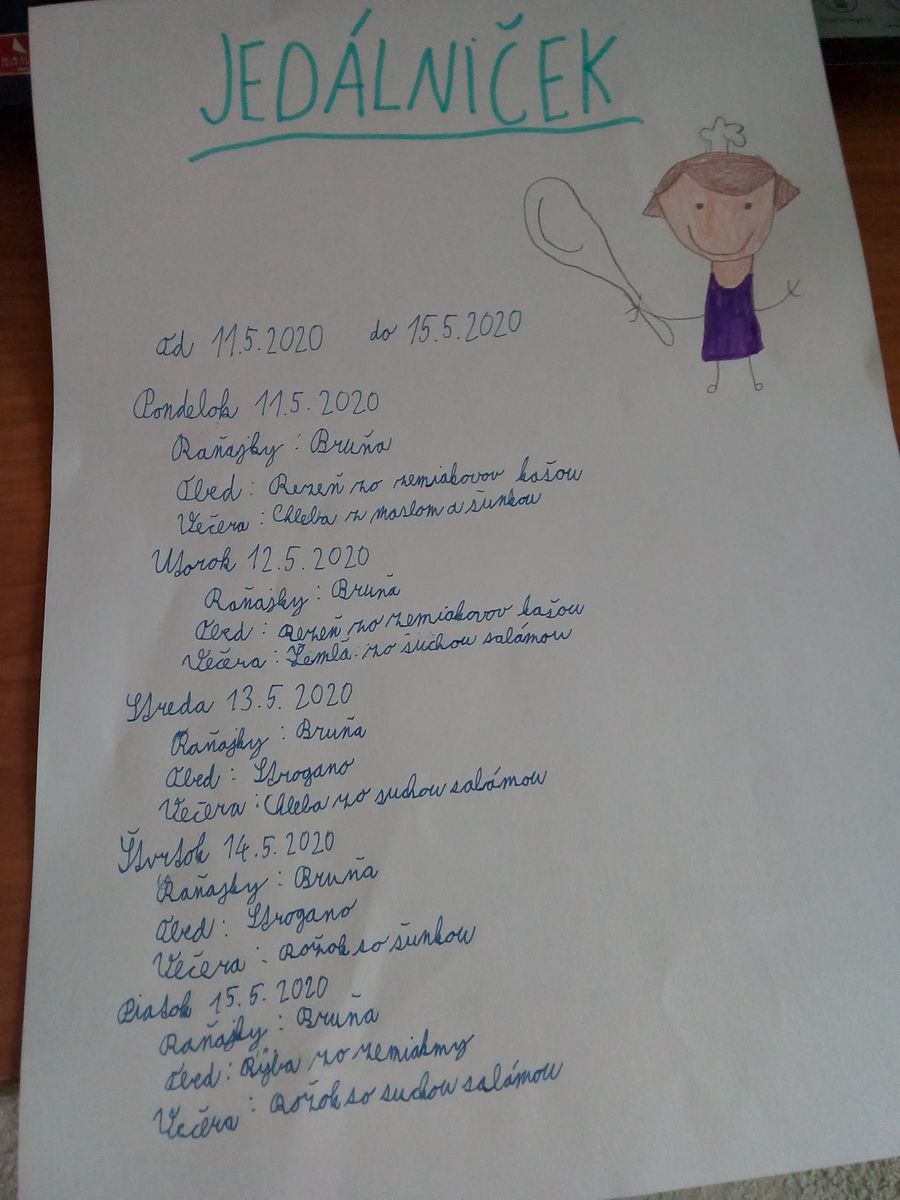 JEDÁLNIČEK
Od 11.5.2020 do 15.5.2020
Pondelok 11.5.2020
Raňajky : Bruňa
Obed : Rezeň zo zemiakovov kašou
Večera : Chleba z maslom a šunkou
Utorok 12.5.2020
Raňajky : Bruňa
Obed : Rezeň zo zemiakovov kašou
Večera : Žemlá zo suchou salámou
Streda 13.5.2020
Raňajky : Bruňa
Obed : Strogano
Večera : Chleba zo suchou salámou
Štvrtok 14.5.2020
Raňajky : Bruňa
Obed : Strogano
Večera : Rožok so šunkou
Piatok 15.5.2020
Raňajky : Bruňa
Obed : Ryba zo zemiakmy
Večera : Rožok so suchou salámou